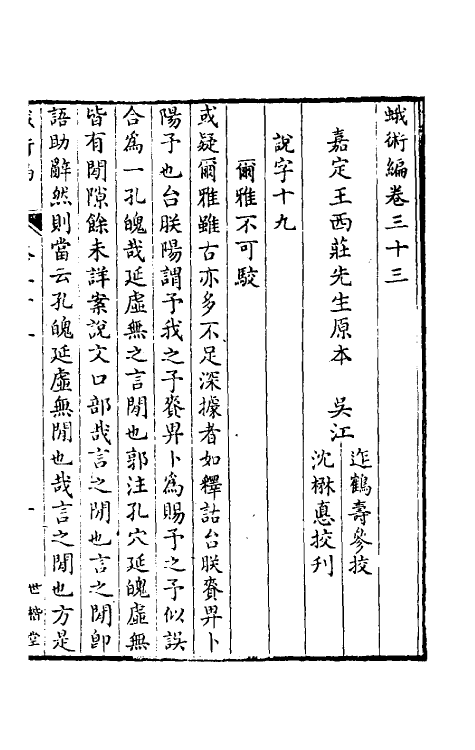 蛾術編卷三十三
嘉定王西莊先生原本　吳江
迮鶴壽參挍
沈楙悳挍刋
說字十九
爾雅不可駮
或疑爾雅雖古亦多不足深據者如釋詁台朕賚畀卜
陽予也台朕陽謂予我之予賚畀卜為賜予之予似誤
合為一孔魄哉延虛無之言閒也郭注孔穴延魄虛無
皆有閒隙餘未詳案說文口部哉言之閒也言之閒卽
語助辭然則當云孔魄延虛無閒也哉言之閒也方是
世楷堂